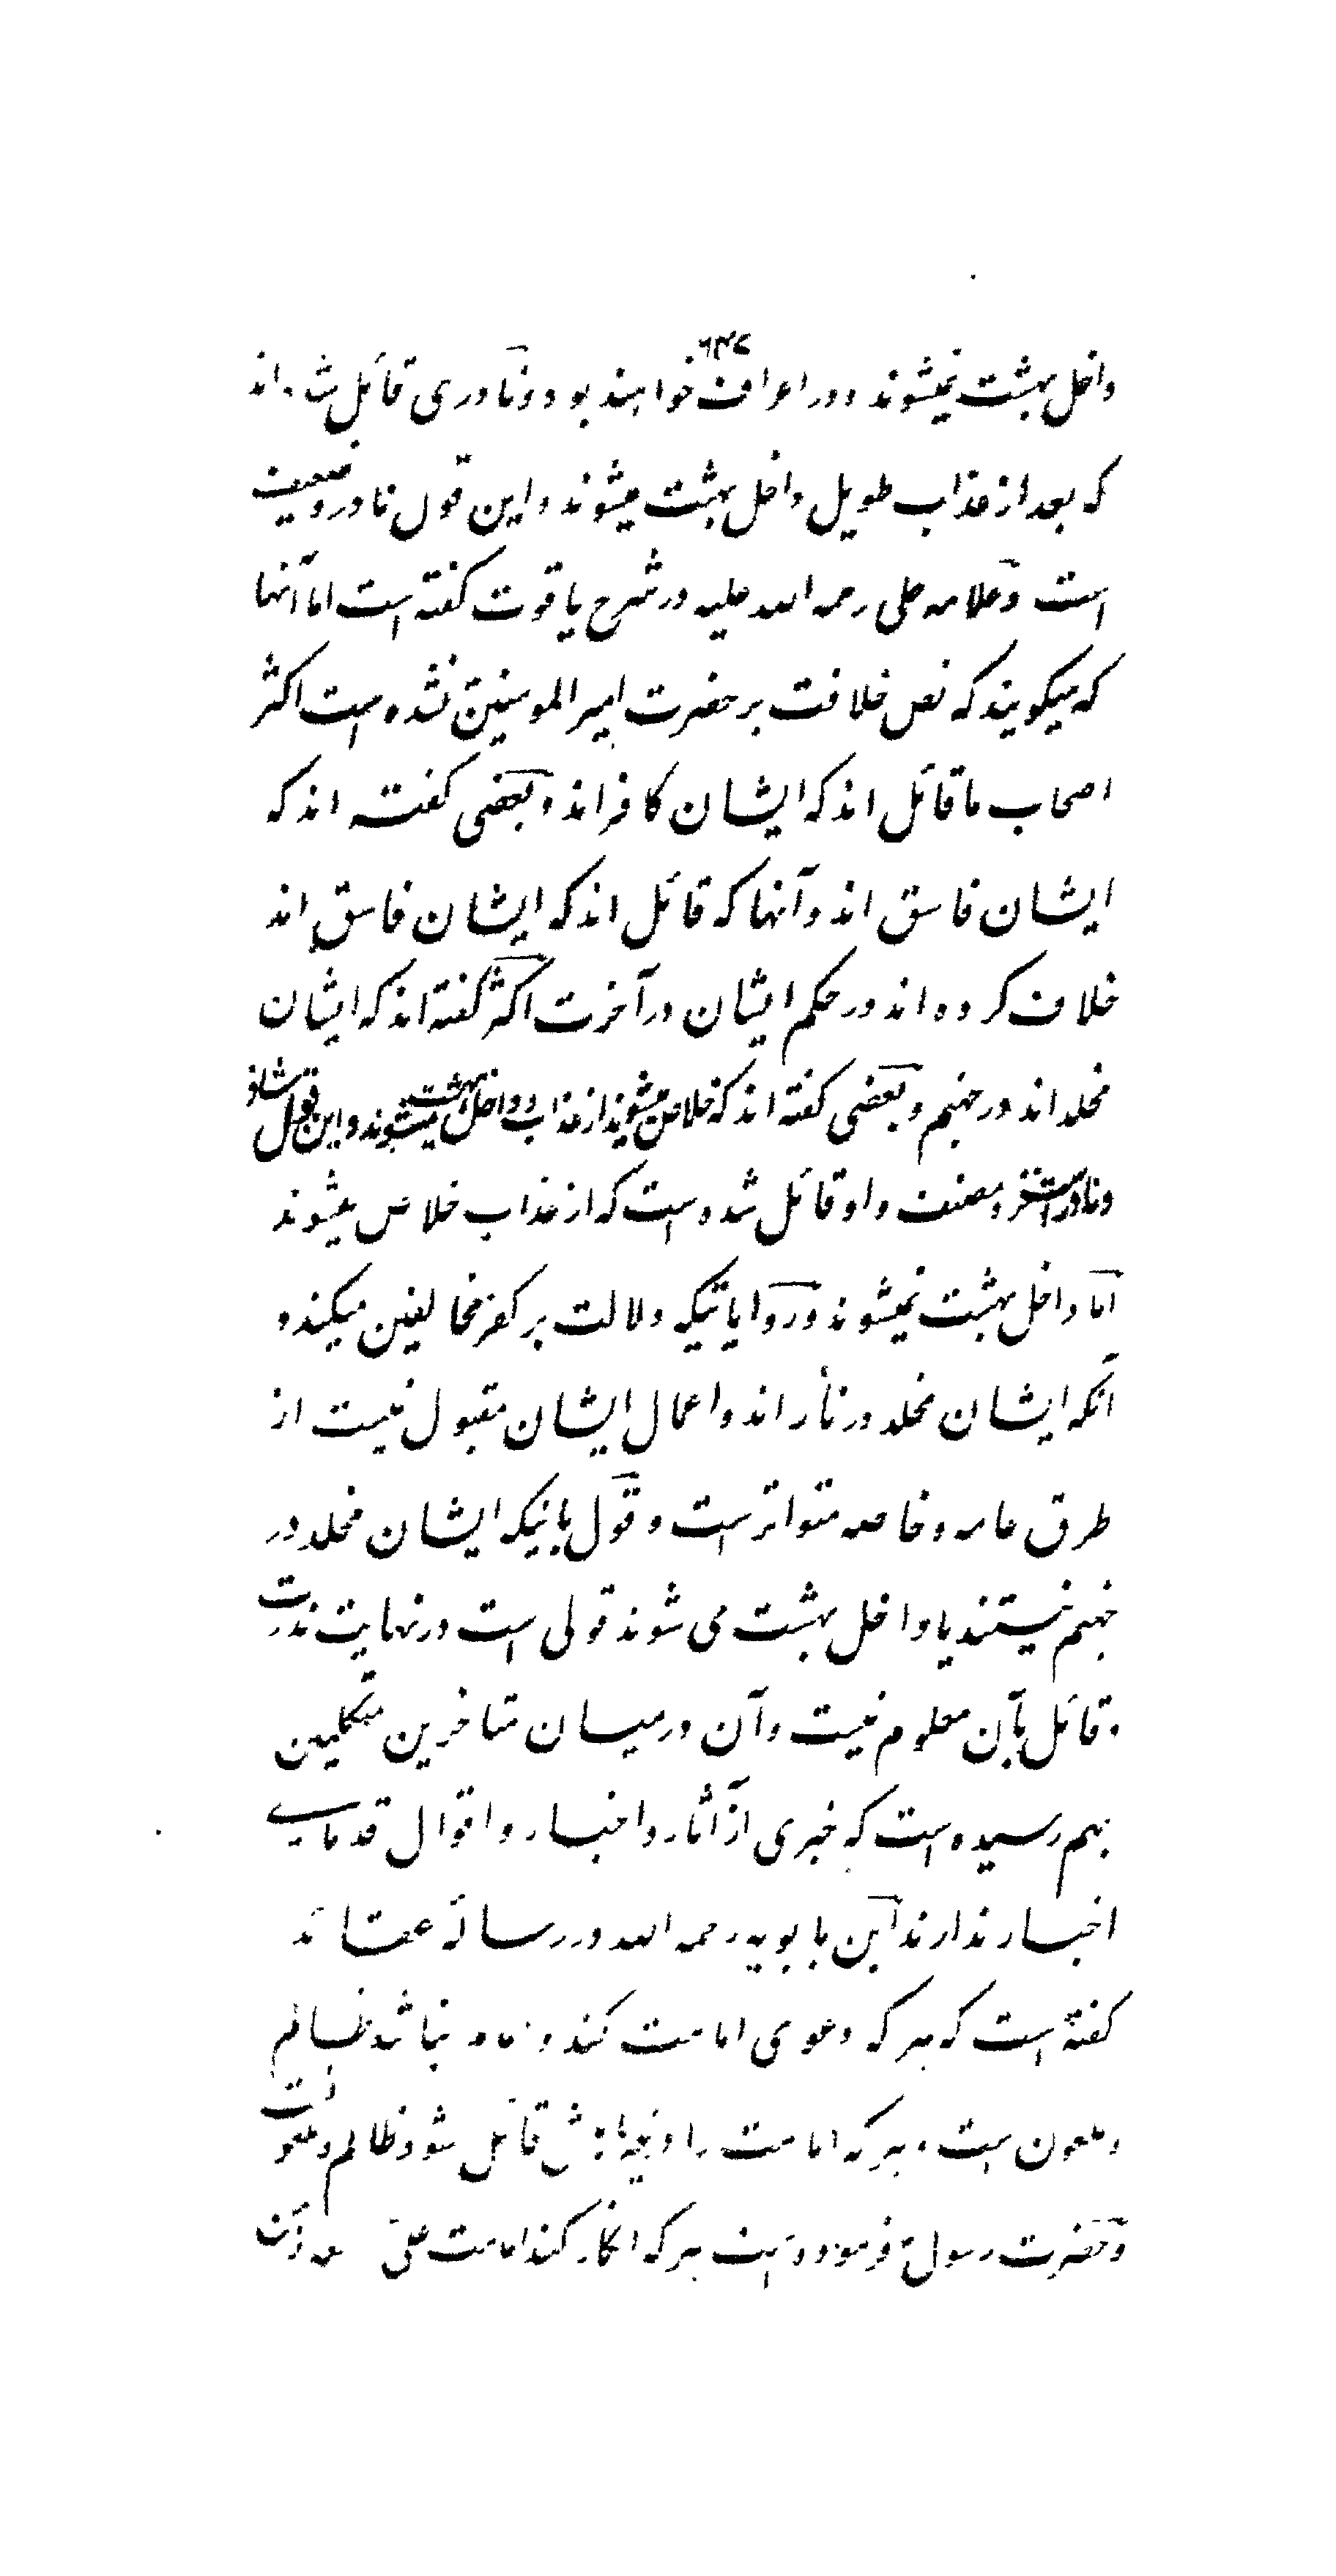 ۶۴۷
داخل بهشت نمیشوند و در اعراف خواهند بود و نادری قائل شده‌اند
که بعد از عذاب طویل داخل بهشت میشوند و این قول نادر و ضعیف
است و علامه حلی رحمه الله علیه در شرح یاقوت گفته است اما آنها
که میگویند که نص خلافت بر حضرت امیر المومنین نشده است اکثر
اصحاب ما قائل اند که ایشان کافر اند و بعضی گفته اند که
ایشان فاسق اند و آنها که قائل اند که ایشان فاسق اند
خلاف کرده اند در حکم ایشان در آخرت اکثر گفته اند که ایشان
مخلد اند در جهنم و بعضی گفته اند که خلاص میشوند از عذاب و داخل بهشت میشوند و این قول شاذ
و نادر است نزد مصنف و او قائل شده است که از عذاب خلاص میشوند
اما داخل بهشت نمیشوند و روایاتیکه دلالت بر کفر مخالفین میکند و
آنکه ایشان مخلد در نار اند و اعمال ایشان مقبول نیست از
طرق عامه و خاصه متواتر است و قول باینکه ایشان مخلد در
جهنم نیستند یا داخل بهشت می شوند قولی است در نهایت ندرت
و قائل بآن معلوم نیست و آن درمیان متاخرین متکلمین
بهم رسیده است که خبری از آثار و اخبار و اقوال قدمای
اخبار ندارند ابن بابویه رحمه الله در رسالهٔ عقائد
گفته است که هر که دعوی امامت کند و امام نباشد ظالم
و ملعون است و هر که امامت را در غیر اهلش قائل شود ظالم و ملعون است
و حضرت رسول فرموده است هر که انکار کند امامت علی بعد از من